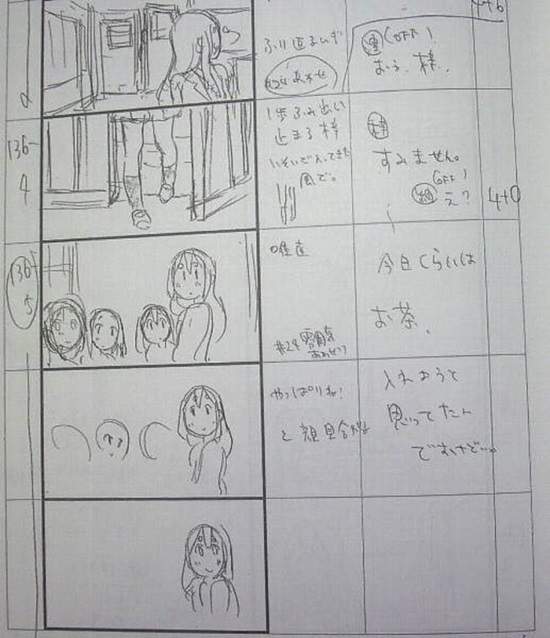 4+6
ふり返るムギ
(OFF)
おう、梓、
136-
4
1歩ふみ出し
止まる梓
いそいで入ってきた
風で。
梓
すみません。
(OFF)
え?
4+0
136
5
唯直
今日くらいは
お茶、
#24
やっぱりね!
と顔見合わせ
入れようと
思ってたん
ですけど…。